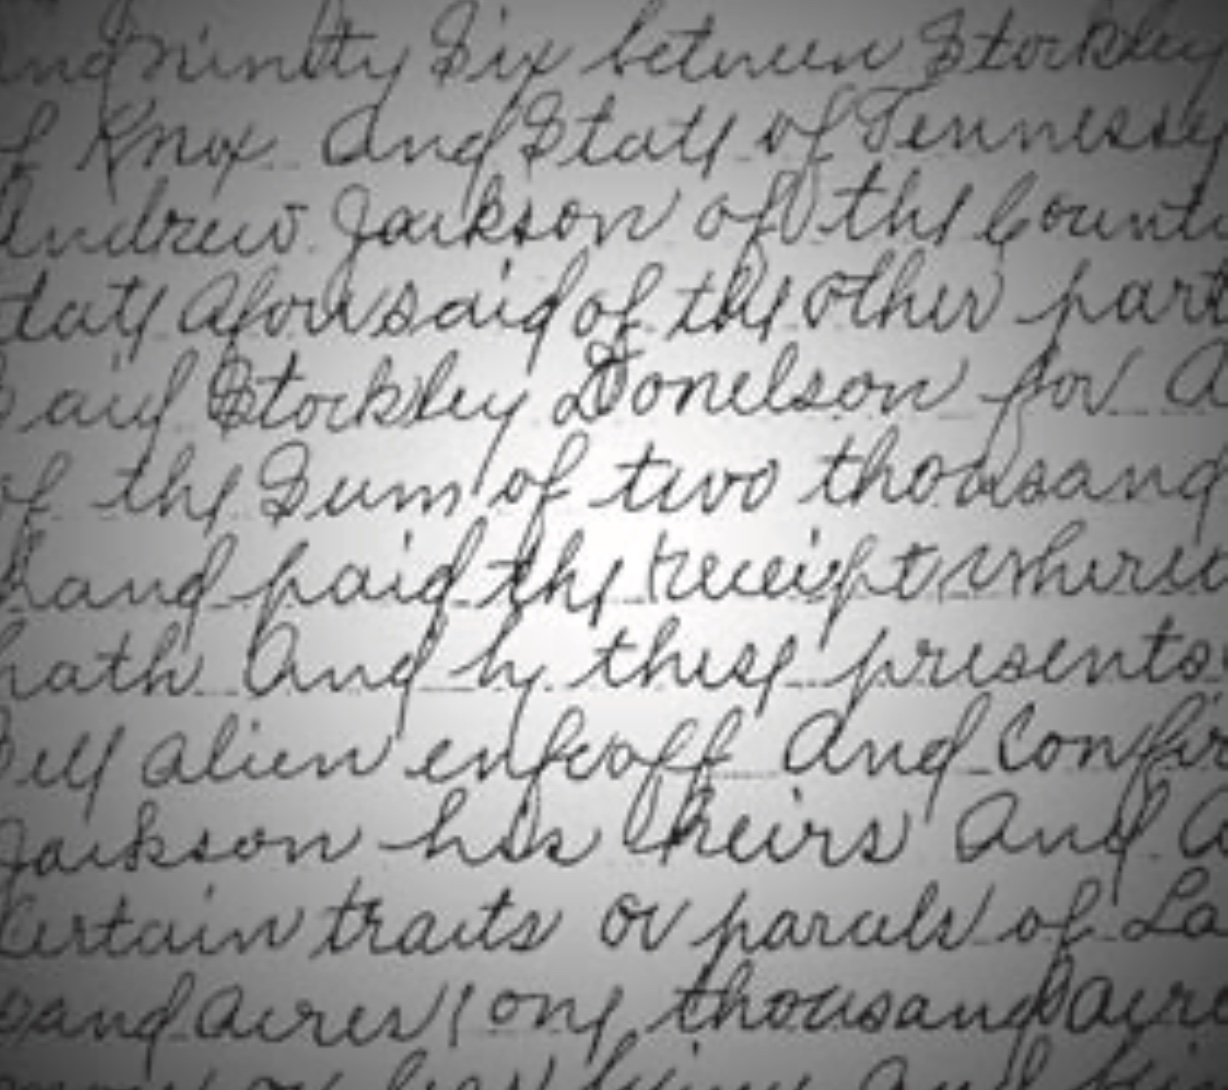 and ninitty Six between Stockley
of Knox And State of Tennessee
Andrew Jackson of the Count
tate Aforesaid of the other part
Said Stockley Donelson for a
of the Sum of two thousand
hand paid the receipt where
hath And by these presents
Sell alien enfeoff And Confir
Jackson his heirs And A
Certain tracts or parcels of La
sand acres (one thousand acre